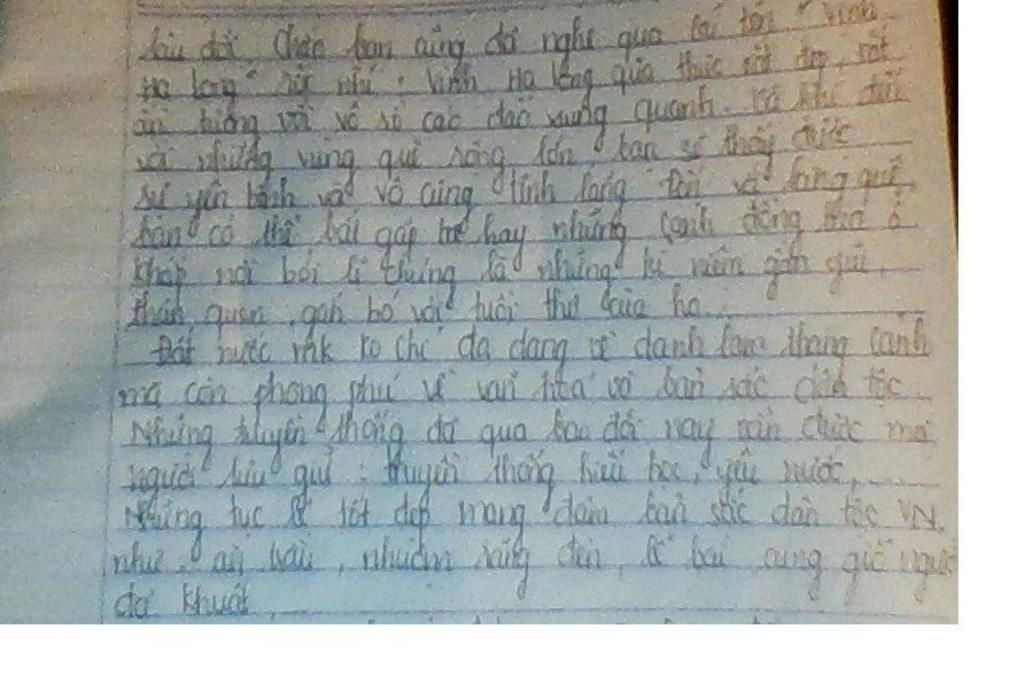 lâu đời. Chắc bạn cũng đã nghe qua cái tên " Vịnh
Hạ Long" rồi nhỉ ; Vịnh Hạ Long quả thực rất đẹp, rất
ấn tượng với vô số các đảo xung quanh. Và khi đến
với những vùng quê sông lớn, bạn sẽ thấy được
sự yên bình và vô cùng tĩnh lặng. Đến với làng quê,
bạn có thể bắt gặp tre hay những cánh đồng lúa ở
khắp nơi bởi lẽ chúng là những kỉ niệm gần gũi,
thân quen, gắn bó với tuổi thơ của họ...
Đất nước mk ko chỉ đa dạng về danh lam thắng cảnh
mà còn phong phú về văn hóa và bản sắc dân tộc.
Những truyền thống đã qua bao đời nay vẫn được mọi
người lưu giữ : truyền thống hiếu học, yêu nước,......
Những tục lệ tốt đẹp mang đậm bản sắc dân tộc VN
như : ăn trầu, nhuộm răng đen, lễ bái cúng giỗ người
đã khuất,